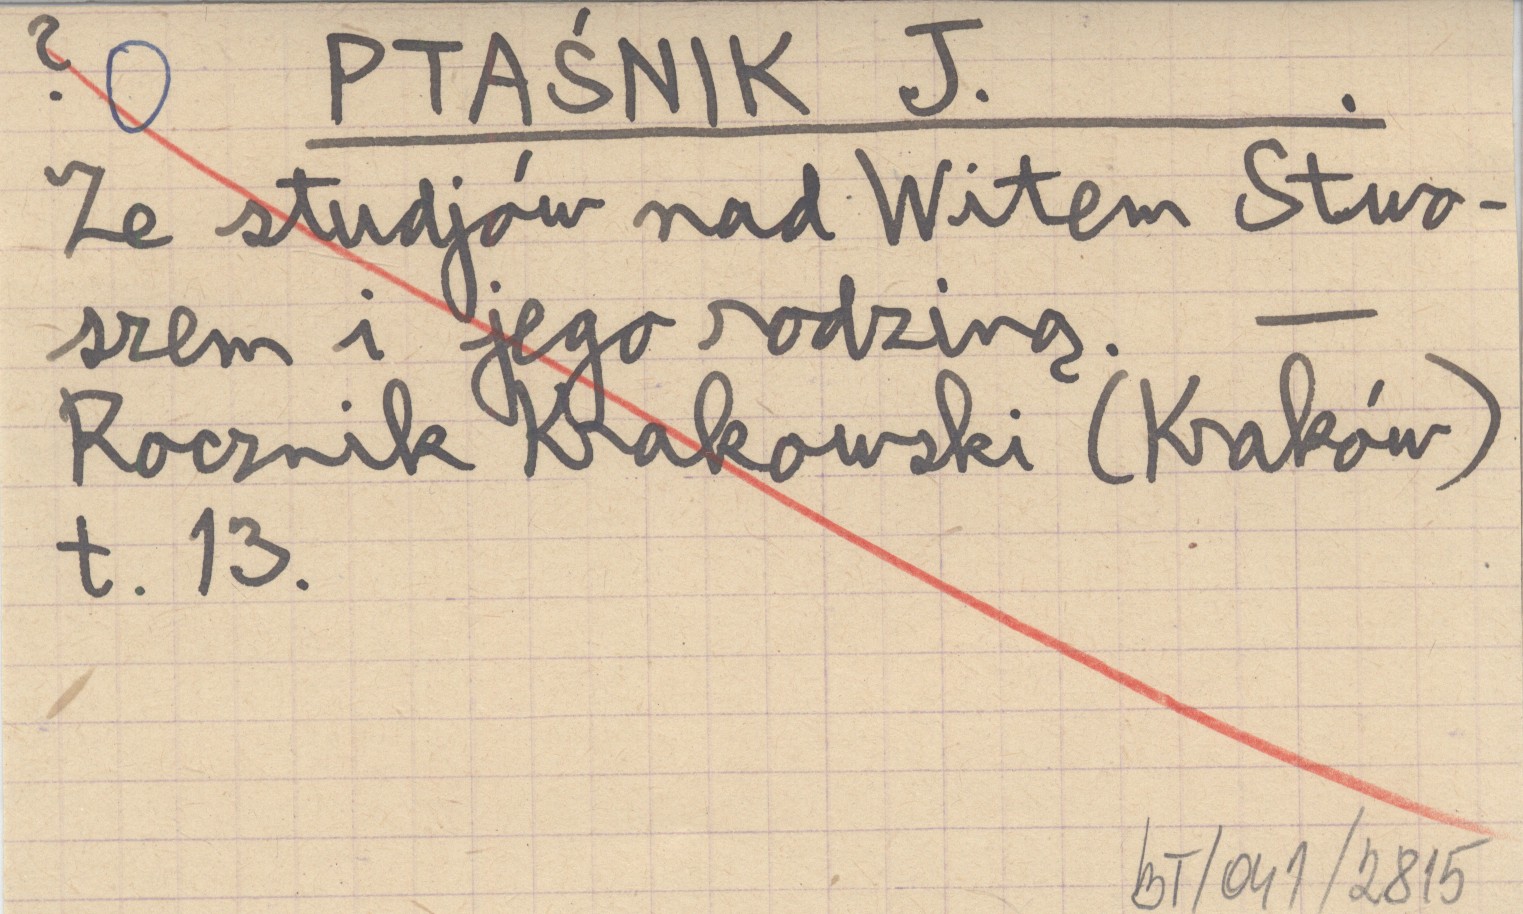 ? O PTAŚNIK J. .
Ze studjów nad Witem Stwo-
szem i jego rodziną. —
Rocznik Krakowski (Kraków)
t. 13.
BT/041/2815